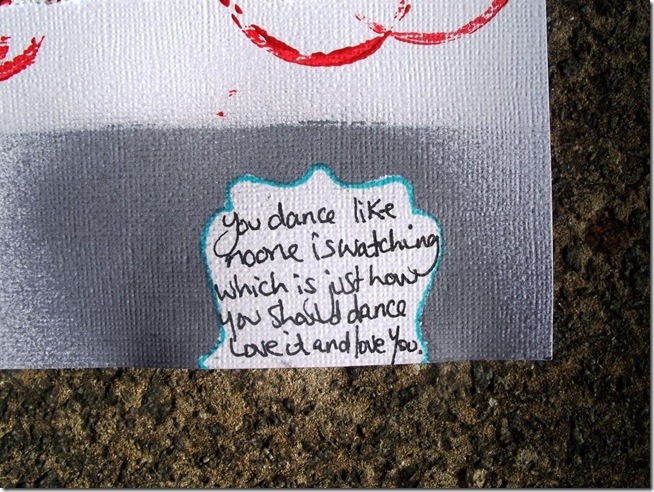 You dance like
noone is watching
which is just how
you should dance
Love it and love You.